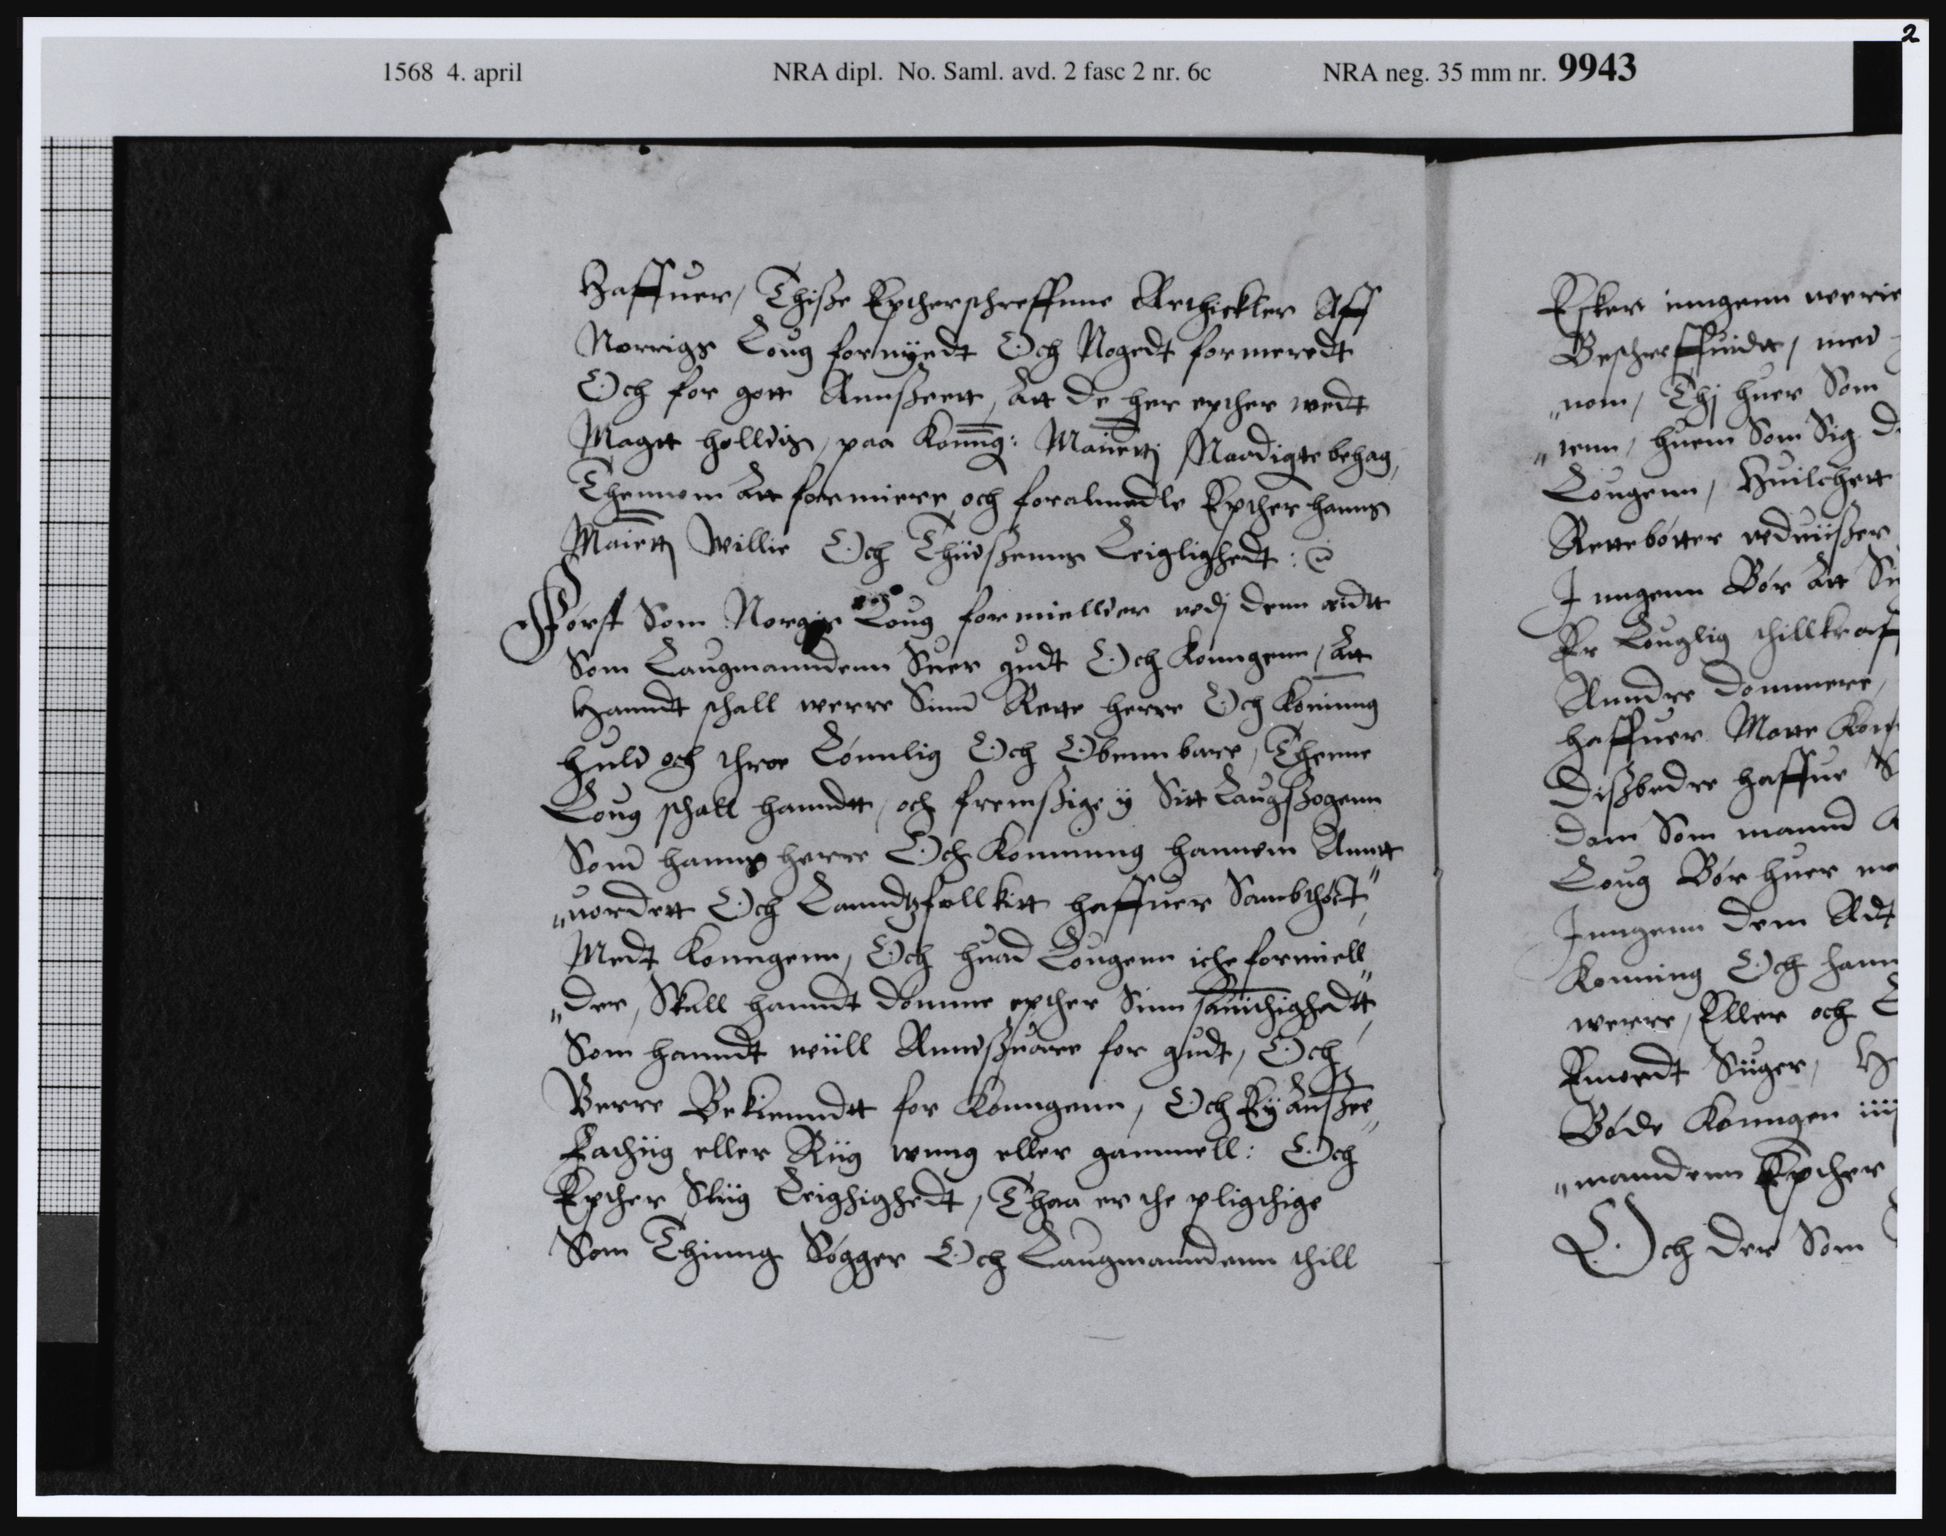 2
1568 4. april NRA dipl. No. Saml. avd. 2 fasc 2 nr. 6c NRA neg. 35 mm nr. 9943
Haffuer, Thisze Epcherschreffnne Arthickler Aff
Norrigs Loug fornÿedt Och Nogedt formeredt
Och for gott Annszeett, Att de her epcher wedt
Magtt holldis, paa Konng: Maiett: Naadigste behag,
Thennom Att formiere, och foralmedle Epcher hanns
Maiett: Willie Och Thiidszenns Leiglighedt:
Fførst Som Norgis Loug formiellder vdj denn eedtt
Som Laugmanndenn Suer gudt Och Konngenn, Att
Hanndt schall werre Sinnd Rette herre Och Konning
Huld och throe Lønnlig Och Obennbare, Thenne
Loug schall hanndtt, och fremszige ÿ Sitt Laugszogenn
Som hanns herre Och Konnung hannem Anntt
"uordett Och Lanndtzfollkitt haffuer Sambthøct"
Medt Konngenn, Och huad Lougenn iche formiell"
"der, Skall hanndt dømme epcher Sinn samuithighedtt
Som hanndt wiill Anndszuare for gudt, Och
Verre Bekienndtt for Konngenn, Och Eÿ Annszee"
Fachiig eller Riig wnng eller gammell: Och
Epcher Sliig Leighighedt, Thaa er the pligthige
Som Thinng Søgger Och Laugmanndenn thill
Esker inngenn
Beschreffuidtt, med
"nom, Thj huer Som
"renn, huem Som Sig
Lougenn, Huilchett
Rettebøtter vduiiszer
Inngenn Bør Att
Er Louglig thillkraf
Anndre dommere,
haffuer Motte
diszbedre haffue
dom Som mannd
Loug Bør huer
Inngenn dem Adt
Konning Och hann
werre, Eller och
Emoedt Siiger,
Bøde Konngen iiij
"manndenn Epcher
Och der Som